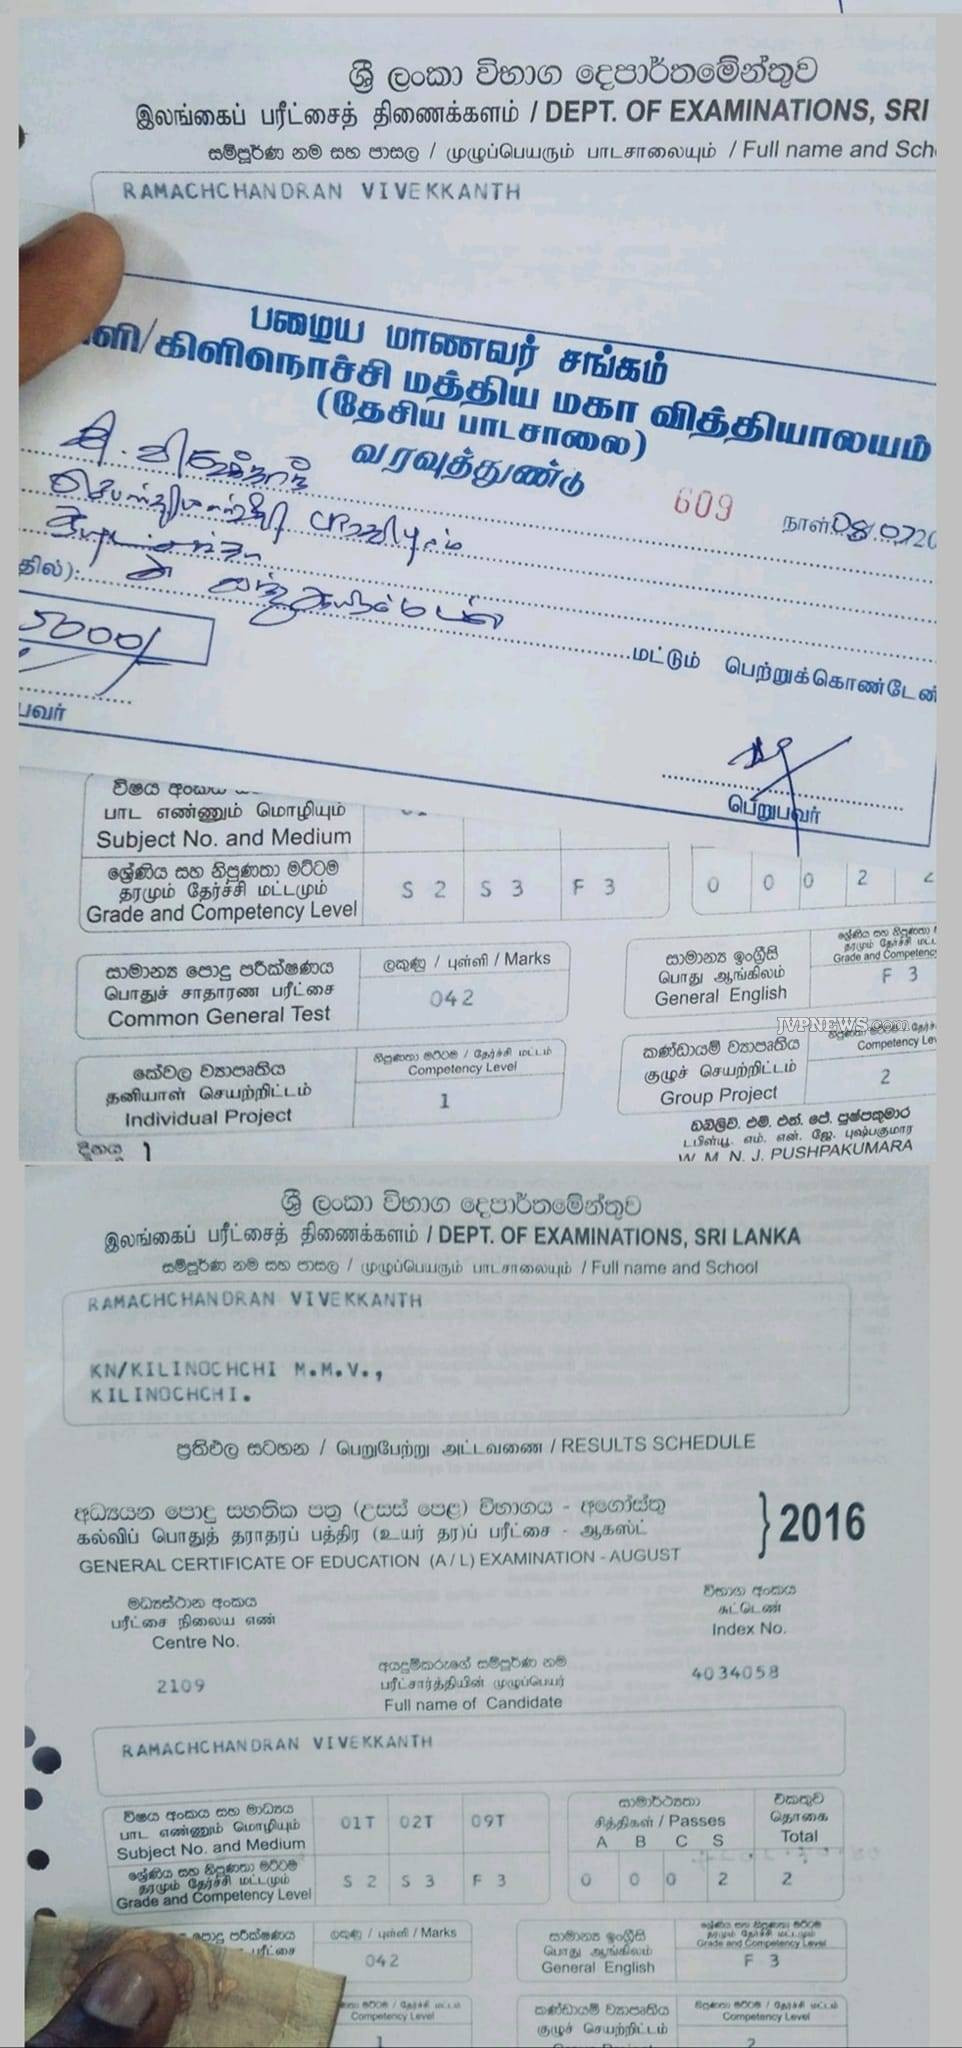 ශ්‍රී ලංකා විභාග දෙපාර්තමේන්තුව
இலங்கைப் பரீட்சைத் திணைக்களம் / DEPT. OF EXAMINATIONS, SRI
සම්පූර්ණ නම සහ පාසල / முழுப்பெயரும் பாடசாலையும் / Full name and Sch
RAMACHCHANDRAN VIVEKKANTH
பழைய மாணவர் சங்கம்
ளி/கிளிநொச்சி மத்திய மகா வித்தியாலயம்
(தேசிய பாடசாலை)
வரவுத்துண்டு
609
நாள் 08.07.20
தில்):
5000/
மட்டும் பெற்றுக்கொண்டேன்
பவர்
பெறுபவர்
විෂය අංකය
பாட எண்ணும் மொழியும்
Subject No. and Medium
ශ්‍රේණිය සහ නිපුණතා මට්ටම
தரமும் தேர்ச்சி மட்டமும்
Grade and Competency Level
S 2 S 3 F 3
0 0 0 2 2
සාමාන්‍ය පොදු පරීක්ෂණය
பொதுச் சாதாரண பரீட்சை
Common General Test
ලකුණු / புள்ளி / Marks
042
සාමාන්‍ය ඉංග්‍රීසි
பொது ஆங்கிலம்
General English
ශ්‍රේණිය සහ නිපුණතා
தரமும் தேர்ச்சி மட்
Grade and Competency
F 3
JVPNEWS.com
කේවල ව්‍යාපෘතිය
தனியாள் செயற்றிட்டம்
Individual Project
නිපුණතා මට්ටම / தேர்ச்சி மட்டம்
Competency Level
1
කණ්ඩායම් ව්‍යාපෘතිය
குழுச் செயற்றிட்டம்
Group Project
නිපුණතා මට්ටම / தேர்ச்
Competency Le
2
ඩබ්ලිව්. එම්. එන්. ජේ. පුෂ්පකුමාර
டபிள்யூ. எம். என். ஜே. புஷ்பகுமார
W. M. N. J. PUSHPAKUMARA
දිනය
ශ්‍රී ලංකා විභාග දෙපාර්තමේන්තුව
இலங்கைப் பரீட்சைத் திணைக்களம் / DEPT. OF EXAMINATIONS, SRI LANKA
සම්පූර්ණ නම සහ පාසල / முழுப்பெயரும் பாடசாலையும் / Full name and School
RAMACHCHANDRAN VIVEKKANTH
KN/KILINOCHCHI M.M.V.,
KILINOCHCHI.
ප්‍රතිඵල සටහන / பெறுபேற்று அட்டவணை / RESULTS SCHEDULE
අධ්‍යයන පොදු සහතික පත්‍ර (උසස් පෙළ) විභාගය - අගෝස්තු
கல்விப் பொதுத் தராதரப் பத்திர (உயர் தர)ப் பரீட்சை - ஆகஸ்ட்
GENERAL CERTIFICATE OF EDUCATION (A / L) EXAMINATION - AUGUST
2016
මධ්‍යස්ථාන අංකය
பரீட்சை நிலைய எண்
Centre No.
2109
විභාග අංකය
சுட்டெண்
Index No.
4034058
අයදුම්කරුගේ සම්පූර්ණ නම
பரீட்சார்த்தியின் முழுப்பெயர்
Full name of Candidate
RAMACHCHANDRAN VIVEKKANTH
විෂය අංකය සහ මාධ්‍යය
பாட எண்ணும் மொழியும்
Subject No. and Medium
01T 02T 09T
සාමාර්ථ්‍යතා
சித்திகள் / Passes
A B C S
එකතුව
தொகை
Total
ශ්‍රේණිය සහ නිපුණතා මට්ටම
தரமும் தேர்ச்சி மட்டமும்
Grade and Competency Level
S 2 S 3 F 3
0 0 0 2 2
පොදු පරීක්ෂණය
பரீட்சை
ලකුණු / புள்ளி / Marks
042
සාමාන්‍ය ඉංග්‍රීසි
பொது ஆங்கிலம்
General English
ශ්‍රේණිය සහ නිපුණතා මට්ටම
தரமும் தேர்ச்சி மட்டமும்
Grade and Competency Level
F 3
மட்டம் / தேர்ச்சி மட்டம்
Competency Level
1
කණ්ඩායම් ව්‍යාපෘතිය
குழுச் செயற்றிட்டம்
Group Project
නිපුණතා මට්ටම / தேர்ச்சி மட்டம்
Competency Level
2